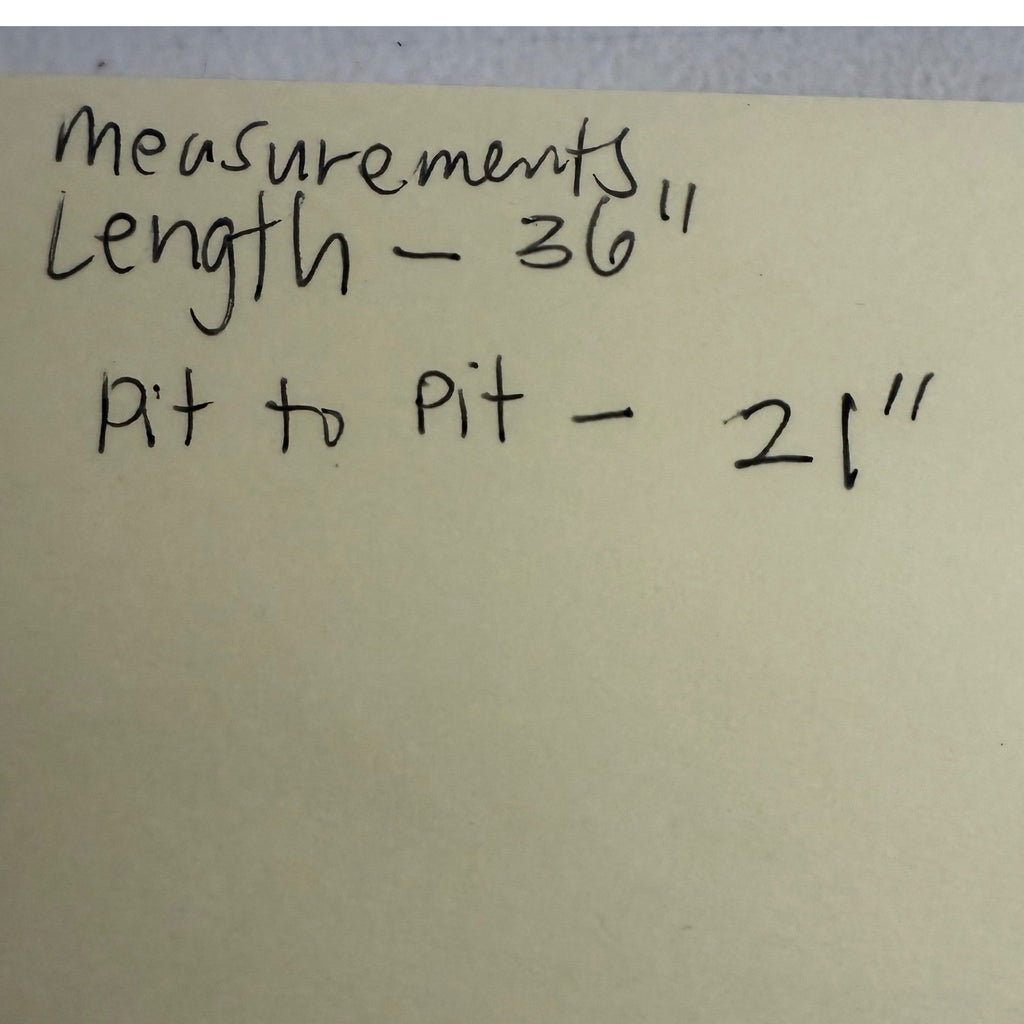 Measurements
Length - 36"
Pit to Pit - 21"